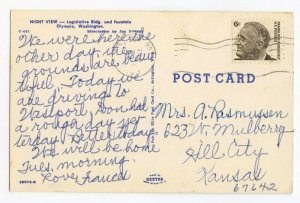 NIGHT VIEW — Legislative Bldg. and fountain
Olympia, Washington.
We were here the
other day, the
grounds are beau
tiful. Today we
are driving to
Vasport, Don had
a rough day yes
terday. Better today.
We will be home
Tues. morning.
Love, Frances
6¢
POST CARD
Mrs. A. Rasmussen
623 N. Mulberry
Hill City
Kansas
67642
DEXTER